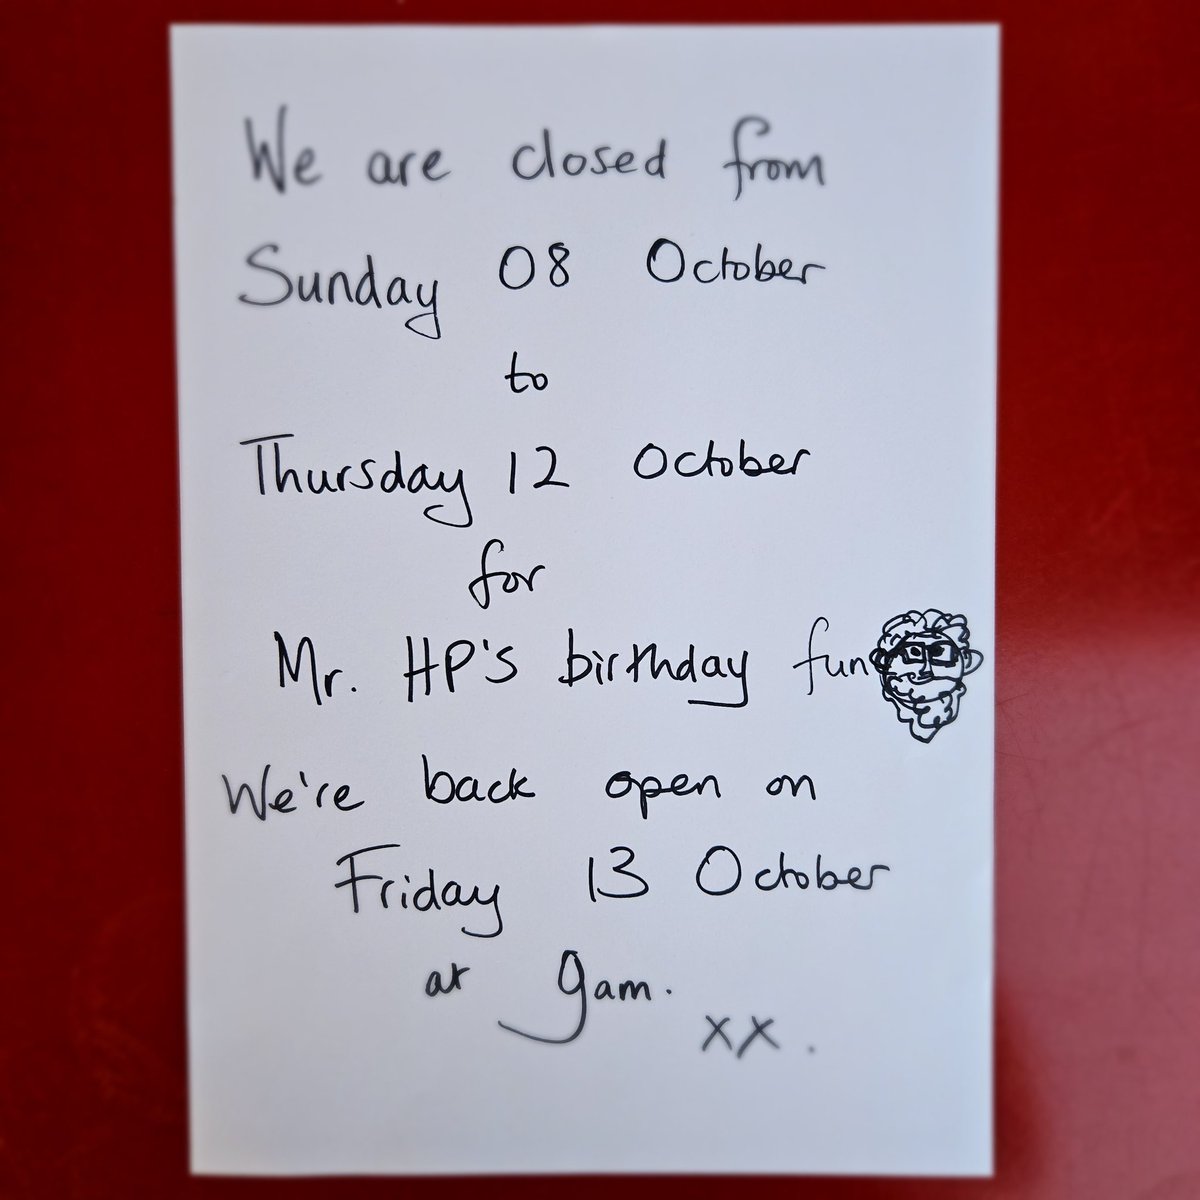 We are closed from
Sunday 08 October
to
Thursday 12 October
for
Mr. HP's birthday fun
We're back open on
Friday 13 October
at 9am.
xx.